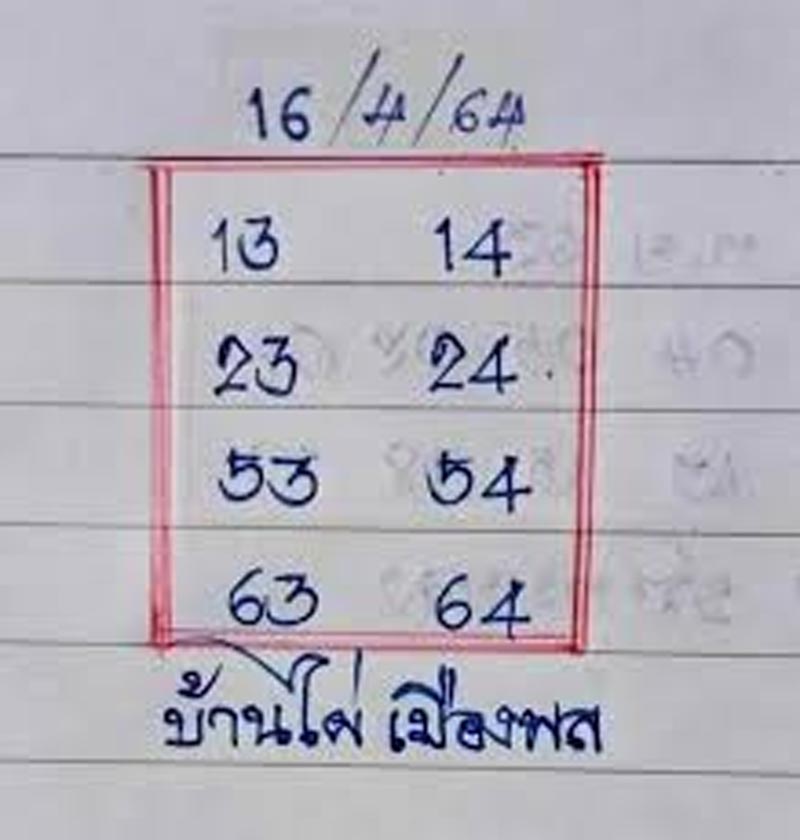 16/4/64
13 14
23 24
53 54
63 64
บ้านไผ่ เมืองพล